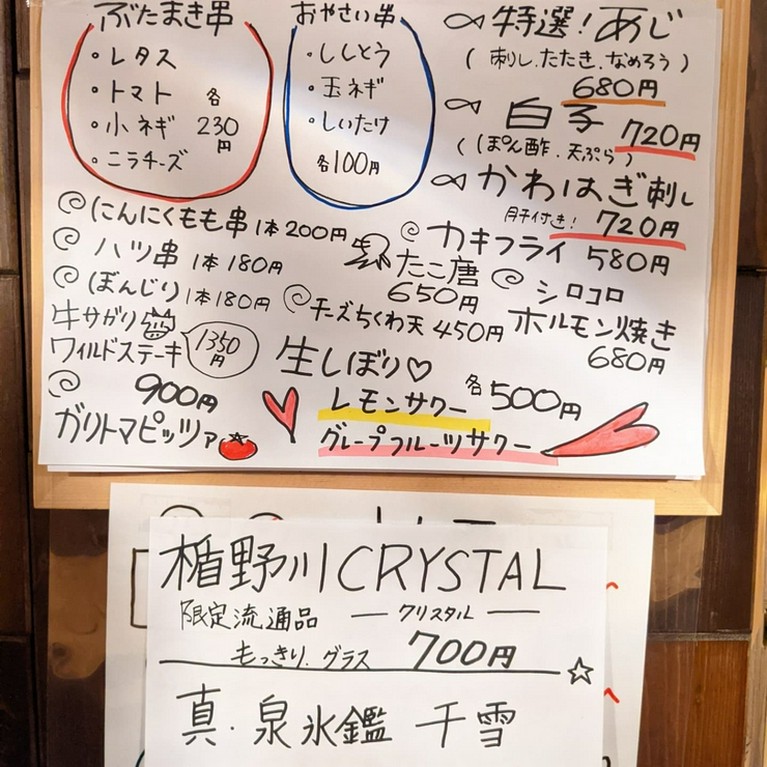 ぶたまき串
・レタス
・トマト
・小ネギ
・ニラチーズ
各
230
円
おやさい串
・ししとう
・玉ネギ
・しいたけ
各100円
特選!あじ
(刺し.たたき.なめろう)
680円
白子
720円
(ぽん酢.天ぷら)
かわはぎ刺し
肝付き! 720円
にんにくもも串 1本200円
ハツ串 1本180円
ぼんじり 1本180円
牛サガリ
ワイルドステーキ
1350
円
カキフライ 580円
たこ唐
650円
チーズちくわ天 450円
シロコロ
ホルモン焼き
680円
900円
ガリトマピッツァ
生しぼり♡
レモンサワー
グレープフルーツサワー
各500円
楯野川CRYSTAL
限定流通品 ― クリスタル ―
もっきり.グラス 700円
☆
真・泉氷鑑 千雪